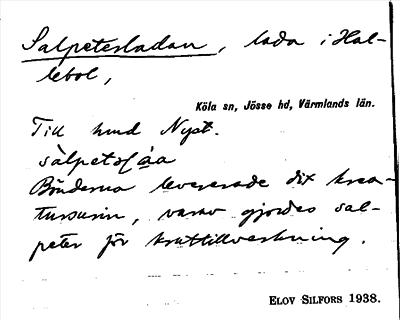 Salpeterladan, lada i Hal-
lebol,
Köla sn, Jösse hd, Värmlands län.
Till hmd Nyst.
Bönderna levererade dit krea-
tursurin, varav gjordes sal-
peter för kruttillverkning.
ELOV SILFORS 1938.